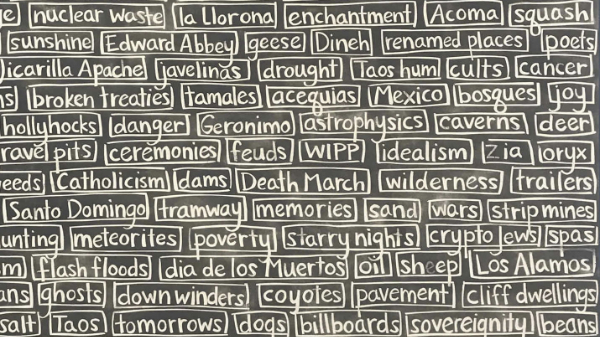 nuclear waste la Llorona enchantment Acoma squash
sunshine Edward Abbey geese Dineh renamed places poets
icarilla Apache javelinas drought Taos hum cults cancer
ns broken treaties tamales acequias Mexico bosques joy
hollyhocks danger Geronimo astrophysics caverns deer
ravel pits ceremonies feuds WIPP idealism Zia oryx
eeds Catholicism dams Death March wilderness trailers
Santo Domingo tramway memories sand wars strip mines
unting meteorites poverty starry nights crypto Jews spas
m flash floods dia de los Muertos oil sheep Los Alamos
ans ghosts down winders coyotes pavement cliff dwellings
salt Taos tomorrows dogs billboards sovereignity beans